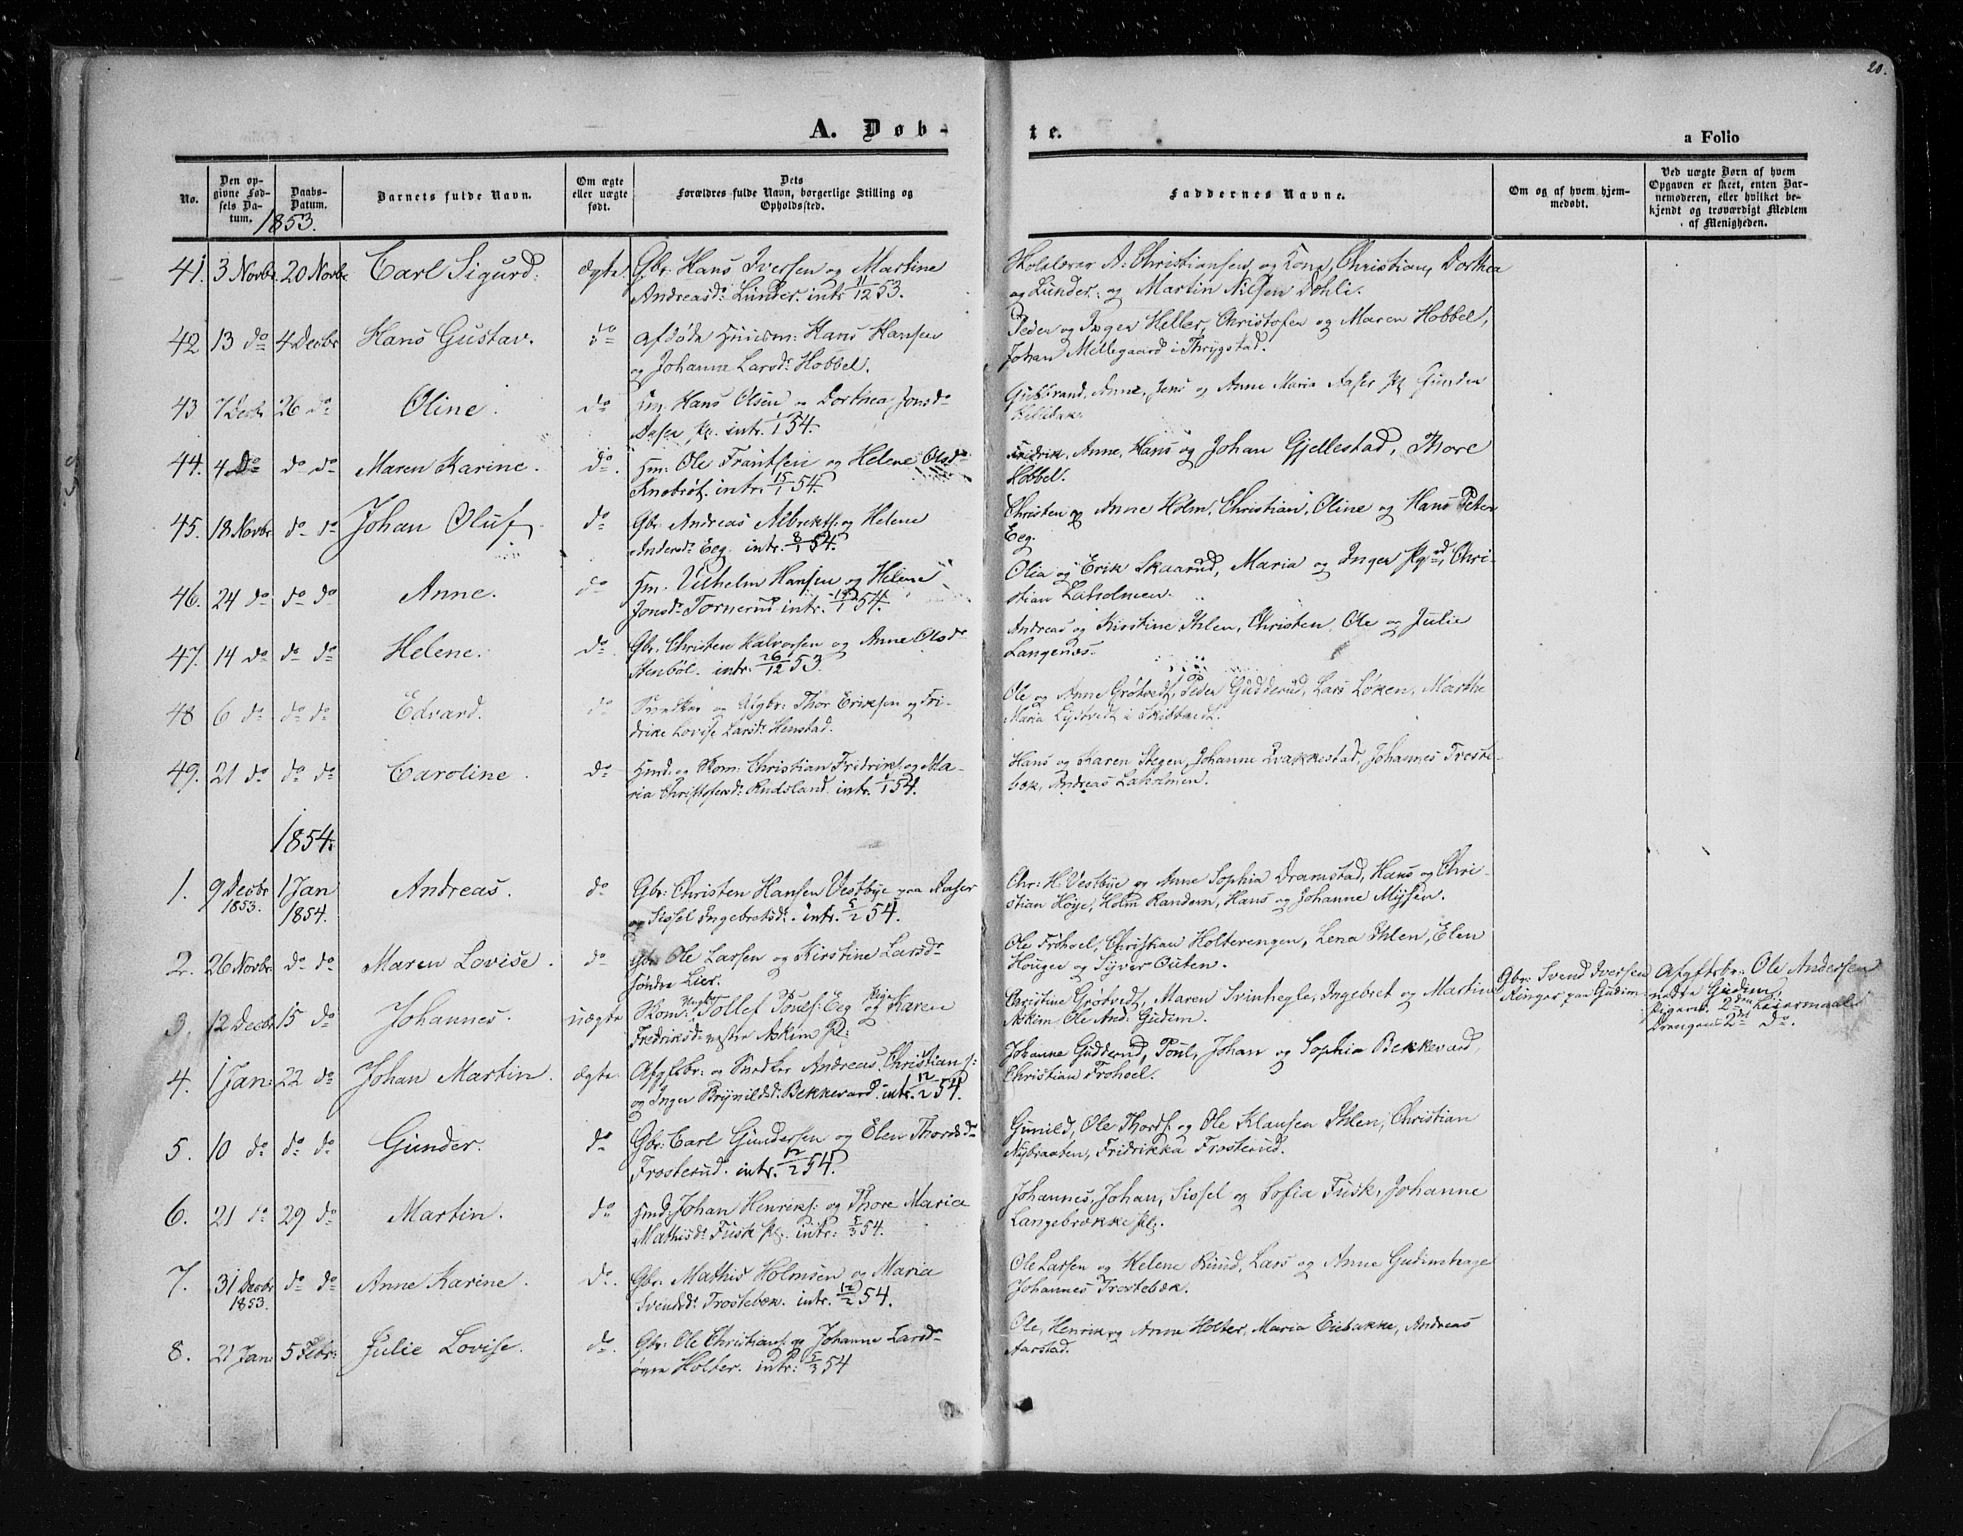 20.
A. Døb-
te.
a Folio
No.
Den op-
givne Fød-
sels Da-
tum.
Daabs-
Datum.
Barnets fulde Navn.
Om ægte
eller uægte
født.
Dets
Forældres fulde Navn, borgerlige Stilling og
Opholdssted.
Faddernes Navne.
Om og af hvem hjem-
medøbt.
Ved uægte Børn af hvem
Opgaven er skeet, enten Bar-
nemoderen, eller hvilket be-
kjendt og troværdigt Medlem
af Menigheden.
1853.
41. 3 Novbr. 20 Novbr. Carl Sigurd. ægte Gbr: Hans Iversen og Martine
Andreasd: Lunder. intr 11/12 53.
A: Christiansen og Kone, Christian, Dorthea
og Lunder. og Martin Nilsen Dohli.
42 13 do 4 Decbr Hans Gustav. do afdöde Huusm: Hans Hansen
og Johanna Larsd: Hobbel.
Peder og Inger Heller, Christofer og Maren Hobbel,
Johan Mellegaard i Thrygstad.
43 7 Decb. 26 do Oline. do Hm. Hans Olsen og Dorthea Jonsd:
intr. 1/1 54.
Gulbrand, Anne, Jens og Anne Maria Aaser pl
44. 4 do do do Maren Karine. do. Hm: Ole Frantsen og Helene Olsd:
intr. 15/1 54.
Fredrik, Anne, Hans og Johan Gjellestad, Thore
Hobbel.
45. 18 Novbr do do Johan Oluf. do Gbr. Andreas Albrekts. og Helene
Andersd: Eeg. intr. 8/1 54.
Christen og Anne Holm, Christian, Oline og Hans Peter
Eeg.
46. 24 do do do Anne. do Hm. Vilhelm Hansen og Helene
Jonsd: Tornerud intr. 54.
Olia og Erik Skaarud, Maria og Inger Chri-
stian Laholmen.
47. 14 do do do Helene. do Gbr: Christen Halvorsen og Anne Olsd:
Stenböl. intr. 26/12 53.
Andreas og Kirstine Ihlen, Christen, Ole og Julie
Langenæs.
48 6 do do do Edvard. do Snedker og Thor Eriksen og Fri-
drike Lovise Larsd: Henstad.
Ole og Anne Grötvedt, Peder Gudderud, Lars Löken, Marthe
Maria i Skibtvedt.
49. 21 do do do Caroline. do Hmd. og Skom: Christian Fridriks. og Ma-
ria Christofersd: Rudsland. intr. 1/1 54.
Hans og Karen Stegen, Johanne Krakkestad, Johannes Troste-
bæk, Andreas Laholmen.
1854.
1. 9 Decbr 1853. 1 Jan 1854. Andreas. do Gbr: Christen Hansen Vestbye paa Aaser
og Sissel Ingebretsd: intr. 5/2 54.
Chr: H. Vestbye og Anne Sophia Dramstad, Hans og Chri-
stian Höye, Holm Randem, Hans og Johanne Mysen.
2. 26 Novbr. do do Maren Lovise. do Gbr Ole Larsen og Kirstine Larsd:
söndre Lier.
Ole Fröhoel, Christian Holterengen, Lena Ihlen, Elen
Houger og Syver Outen.
3. 12 Decbr 15 do Johannes. uægte Skom: Ungkr Tollef Pouls: Eeg og Pige Karen
Fredriksd: vestre Askim pl:
Christine Grötvedt, Maren Svinhegle, Ingebret og Martin
Askim Ole And: Gudim.
Gbr: Svend Iversen
Ringer paa Gudim
Afgiftsbr: Ole Andersen
nedre Gudim
Pigens 2den Leiermaal
Drengens 2det do.
4. 1 Jan: 22 do Johan Martin. ægte Afgftbr: og Snedker Andreas Christians:
og Inger Brynildsd: Bekkevard. intr. 12/2 54.
Johanne Gudderud, Poul, Johan og Sophia Bekkevard,
Christian Frohoel.
5. 10 do do do Gunder. do Gbr: Carl Gundersen og Elen Thordsd:
Frosterud. intr. 12/2 54.
Gunild, Ole Thords: og Ole Klausen Ihlen, Christian
Nybraaten, Fridrikka Frosterud.
6. 21 do 29 do Martin. do Hmd: Johan Henriks: og Thore Maria
Mathisd: Fusk pl. intr: 5/3 54.
Johannes, Johan, Sissel og Sofia Fusk, Johanne
Langebrække pl.
7. 31 Decbr 1853. do do Anne Karine. do. Gbr: Mathis Holmsen og Maria
Svendsd: Trostebæk. intr. 12/2 54.
Ole Larsen og Helene Ruud, Lars og Anne Gudimhage
Johannes Trostebæk.
8. 21 Jan: 5 Febr: Julie Lovise. do. Gbr: Ole Christians: og Johanne Larsd:
övre Holter. intr: 5/3 54
Ole, Henrik og Anne Holter, Maria Eubakke, Andreas
Aarstad.